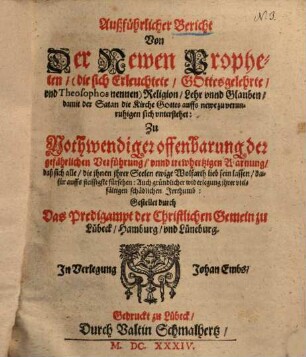 Außführlicher Bericht
Von
Der Newen Prophe-
ten / (die sich Erleuchtete / GOttesgelehrte /
vnd Theosophos nennen) Religion / Lehr vnnd Glauben /
damit der Satan die Kirche Gottes auffs newe zu verun-
ruhigen sich vnterstehet:
Zu
Nothwendiger offenbarung der
gefährlichen Verführung / vnnd trewhertzigen Warnung /
daß sich alle / die jhnen jhrer Seelen ewige Wolfarth lieb sein lassen / da-
für auffs fleissigste fürsehen: Auch gründlicher widerlegung jhrer viel-
fältigen schädlichen Jrrthumb:
Gestellet durch
Das Predigampt der Christlichen Gemein zu
Lübeck / Hamburg / vnd Lüneburg.
In Verlegung Johan Embs /
Gedruckt zu Lübeck /
Durch Valtin Schmalhertz /
M. DC. XXXIV.